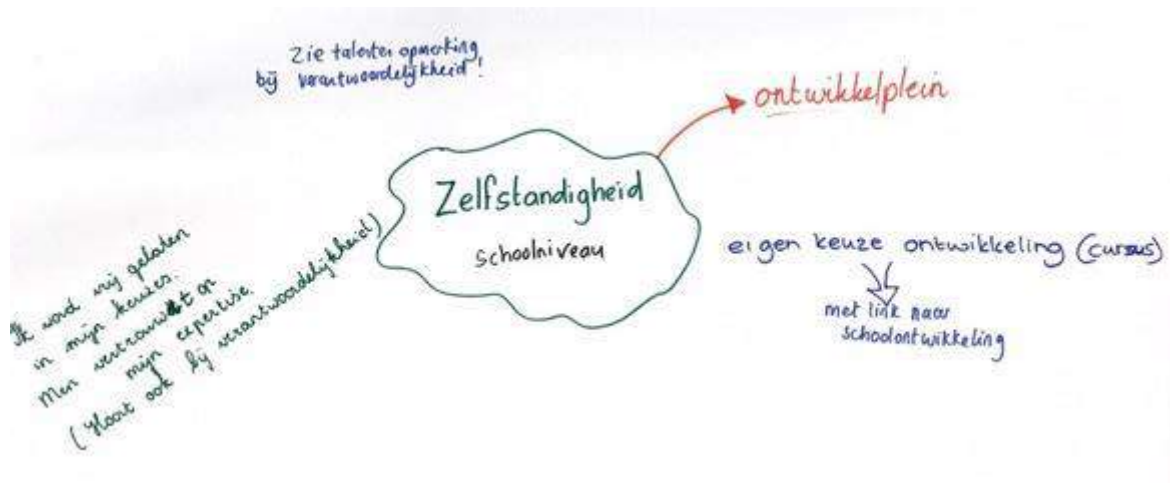 Zie talenten opmerking
bij verantwoordelijkheid!
ontwikkelplein
Zelfstandigheid
schoolniveau
eigen keuze ontwikkeling (cursus)
met link naar
schoolontwikkeling
Ik word vrij gelaten
in mijn keuzes.
Men vertrouwt op
mijn expertise.
(Hoort ook bij verantwoordelijkheid)